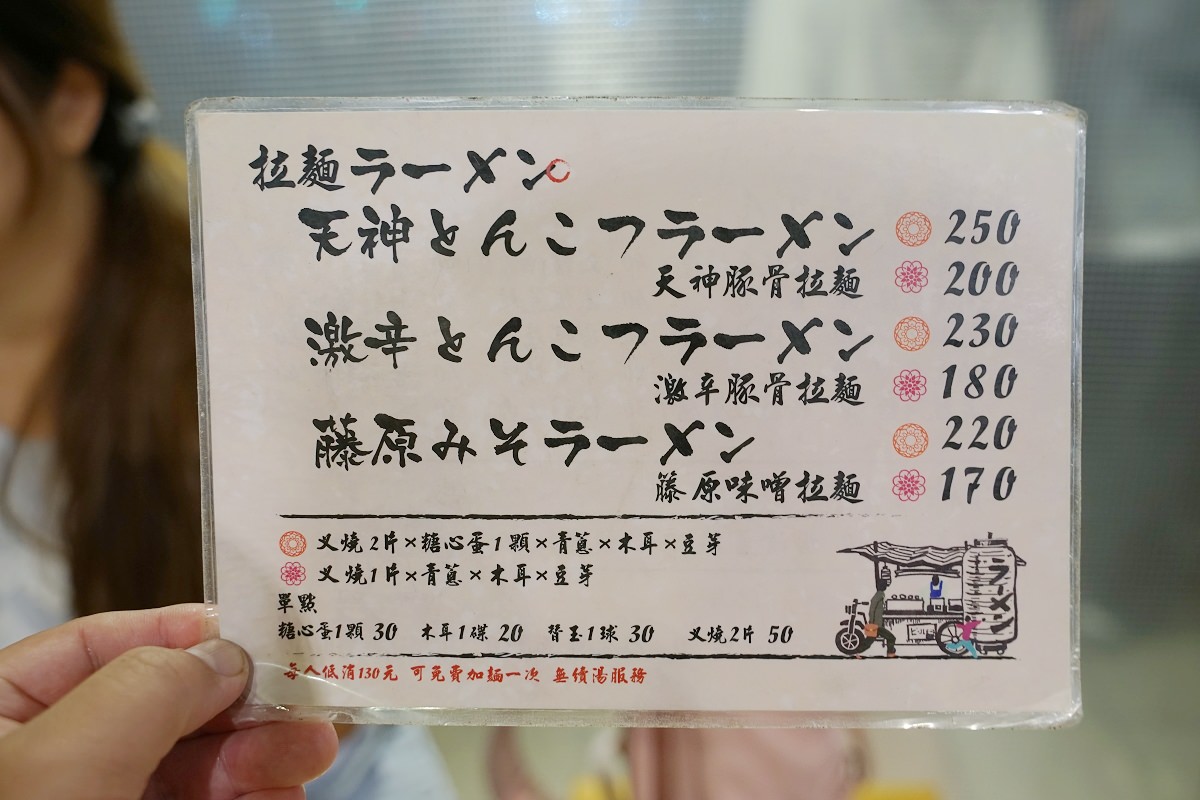 拉麵ラーメン
天神とんこつラーメン 250
天神豚骨拉麵 200
激辛とんこつラーメン 230
激辛豚骨拉麵 180
藤原みそラーメン 220
藤原味噌拉麵 170
叉燒2片×糖心蛋1顆×青蔥×木耳×豆芽
叉燒1片×青蔥×木耳×豆芽
單點
糖心蛋1顆 30 木耳1碟 20 替玉1球 30 叉燒2片 50
每人低消130元 可免費加麵一次 無續湯服務
ラーメン